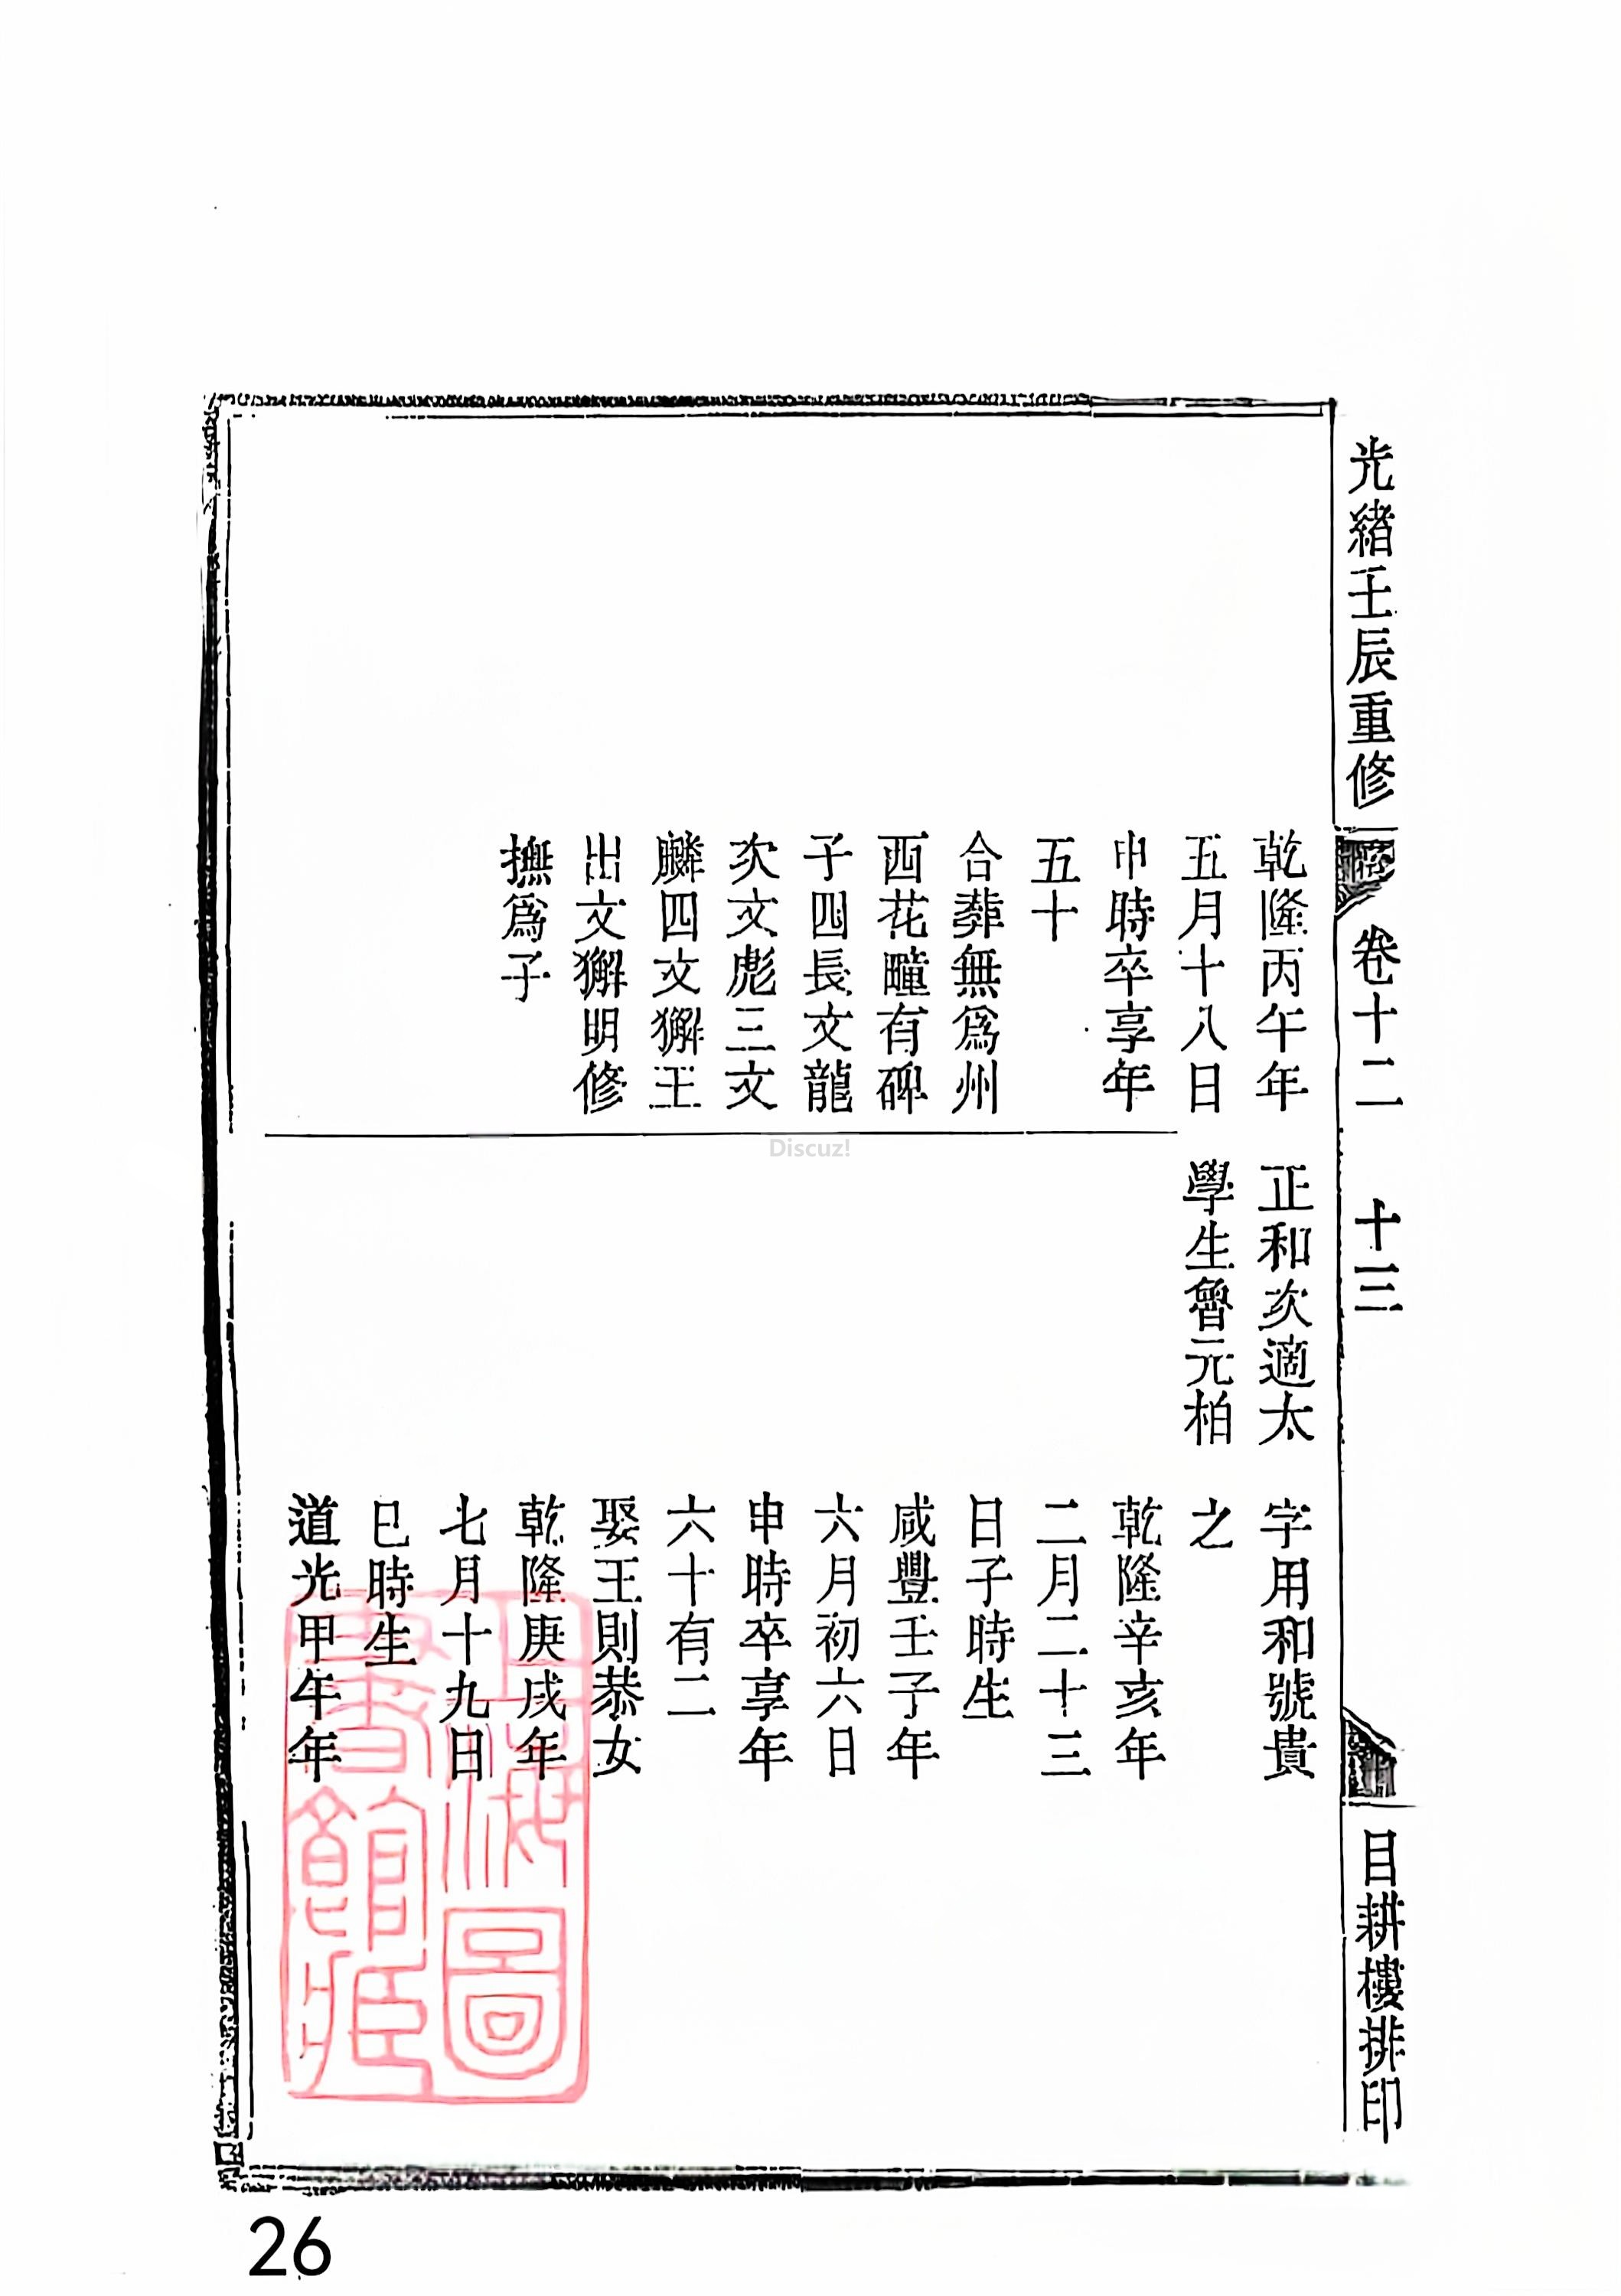 光緒壬辰重修
卷十二
十三
目耕樓排印
乾隆丙午年
五月十八日
申時卒享年
五十
合葬無爲州
西花疃有碑
子四長文龍
次文彪三文
麟四文獬王
出文獬明修
撫爲子
正和次適太
學生魯元柏
字用和號貴
之
乾隆辛亥年
二月二十三
日子時生
咸豐壬子年
六月初六日
申時卒享年
六十有二
娶王則恭女
乾隆庚戌年
七月十九日
巳時生
道光甲午年
上海圖
書館藏
Discuz!
26